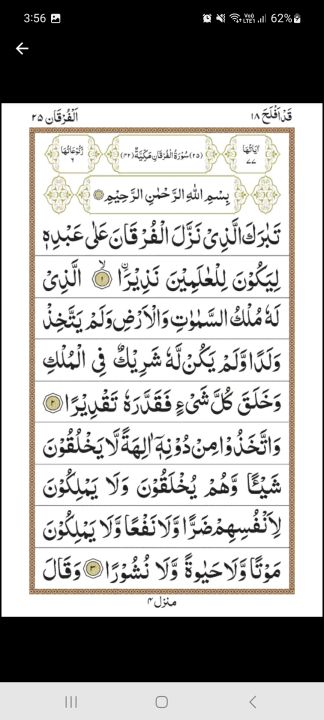 3:56
62%
اَلْفُرْقَان ٢٥
قَدْ اَفْلَحَ ١٨
اٰيَاتُهَا ٧٧
(٢٥) سُوْرَةُ الْفُرْقَانِ مَكِّيَّةٌ (٤٢)
رُكُوْعَاتُهَا ٦
بِسْمِ اللهِ الرَّحْمٰنِ الرَّحِيْمِ
تَبٰرَكَ الَّذِيْ نَزَّلَ الْفُرْقَانَ عَلٰى عَبْدِهٖ
لِيَكُوْنَ لِلْعٰلَمِيْنَ نَذِيْرًا ۙ ١ الَّذِيْ
لَهٗ مُلْكُ السَّمٰوٰتِ وَالْاَرْضِ وَلَمْ يَتَّخِذْ
وَلَدًا وَّلَمْ يَكُنْ لَّهٗ شَرِيْكٌ فِي الْمُلْكِ
وَخَلَقَ كُلَّ شَيْءٍ فَقَدَّرَهٗ تَقْدِيْرًا ٢
وَاتَّخَذُوْا مِنْ دُوْنِهٖٓ اٰلِهَةً لَّا يَخْلُقُوْنَ
شَيْـًٔا وَّهُمْ يُخْلَقُوْنَ وَلَا يَمْلِكُوْنَ
لِاَنْفُسِهِمْ ضَرًّا وَّلَا نَفْعًا وَّلَا يَمْلِكُوْنَ
مَوْتًا وَّلَا حَيٰوةً وَّلَا نُشُوْرًا ٣ وَقَالَ
منزل ٤